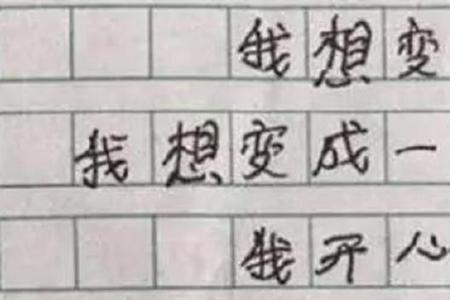 我想变
我想变成一
我开心